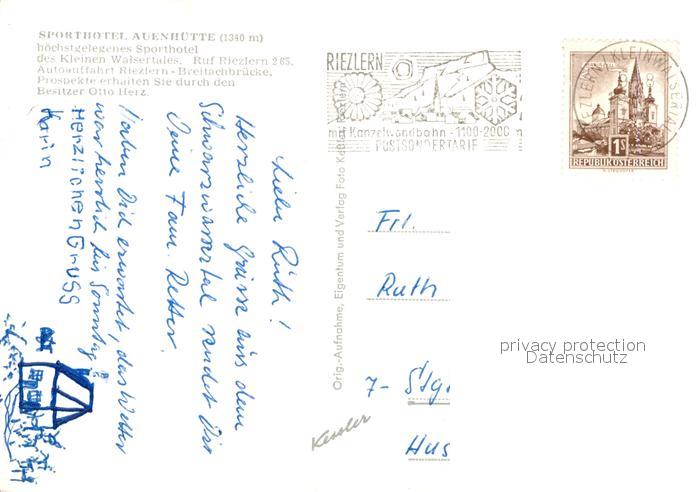 SPORTHOTEL AUENHÜTTE (1340 m)
höchstgelegenes Sporthotel
des Kleinen Walsertales. Ruf Riezlern 265.
Autoauffahrt Riezlern - Breitachbrücke.
Prospekte erhalten Sie durch den
Besitzer Otto Herz.
Liebe Ruth!
Herzliche Grüsse aus dem
Schwarzwassertal sendet Dir
Deine Fam. Retter.
Haben Dich erwartet, das Wetter
war herrlich bis Sonntag
HERZLICHEN GRUSS
Karin
Orig.-Aufnahme, Eigentum und Verlag Foto Keßler, Riezlern
RIEZLERN
mit Kanzelwandbahn - 1100-2000 m
POSTSONDERTARIF
RIEZLERN - KLEINWALSERTAL
1S
REPUBLIK ÖSTERREICH
Frl.
Ruth
7- Stg.
Hus
Kessler
privacy protection
Datenschutz